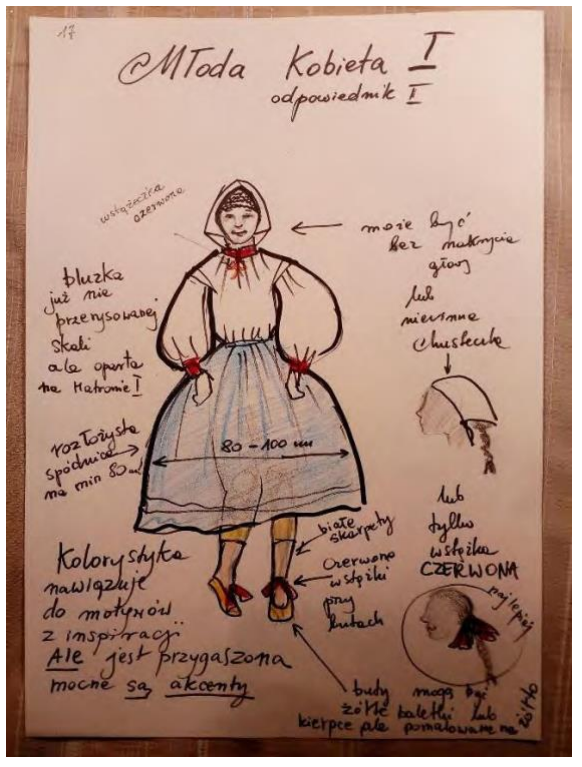 17
Młoda Kobieta I
odpowiednik I
wstążeczka
czerwona
może być
bez nakrycia
głowy
lub
niewinna
chusteczka
bluzka
już nie
przerysowanej
skali
ale oparta
na Matronie I
rozłożysta
spódnica
na min 80
80 - 100 cm
białe
skarpety
czerwone
wstążki
przy
butach
lub
tylko
wstążka
CZERWONA
najlepiej
Kolorystyka
nawiązuje
do motywów
z inspiracji.
Ale jest przygaszona
mocne są akcenty
buty mogą być
żółte baletki lub
kierpce ale pomalowane na żółto